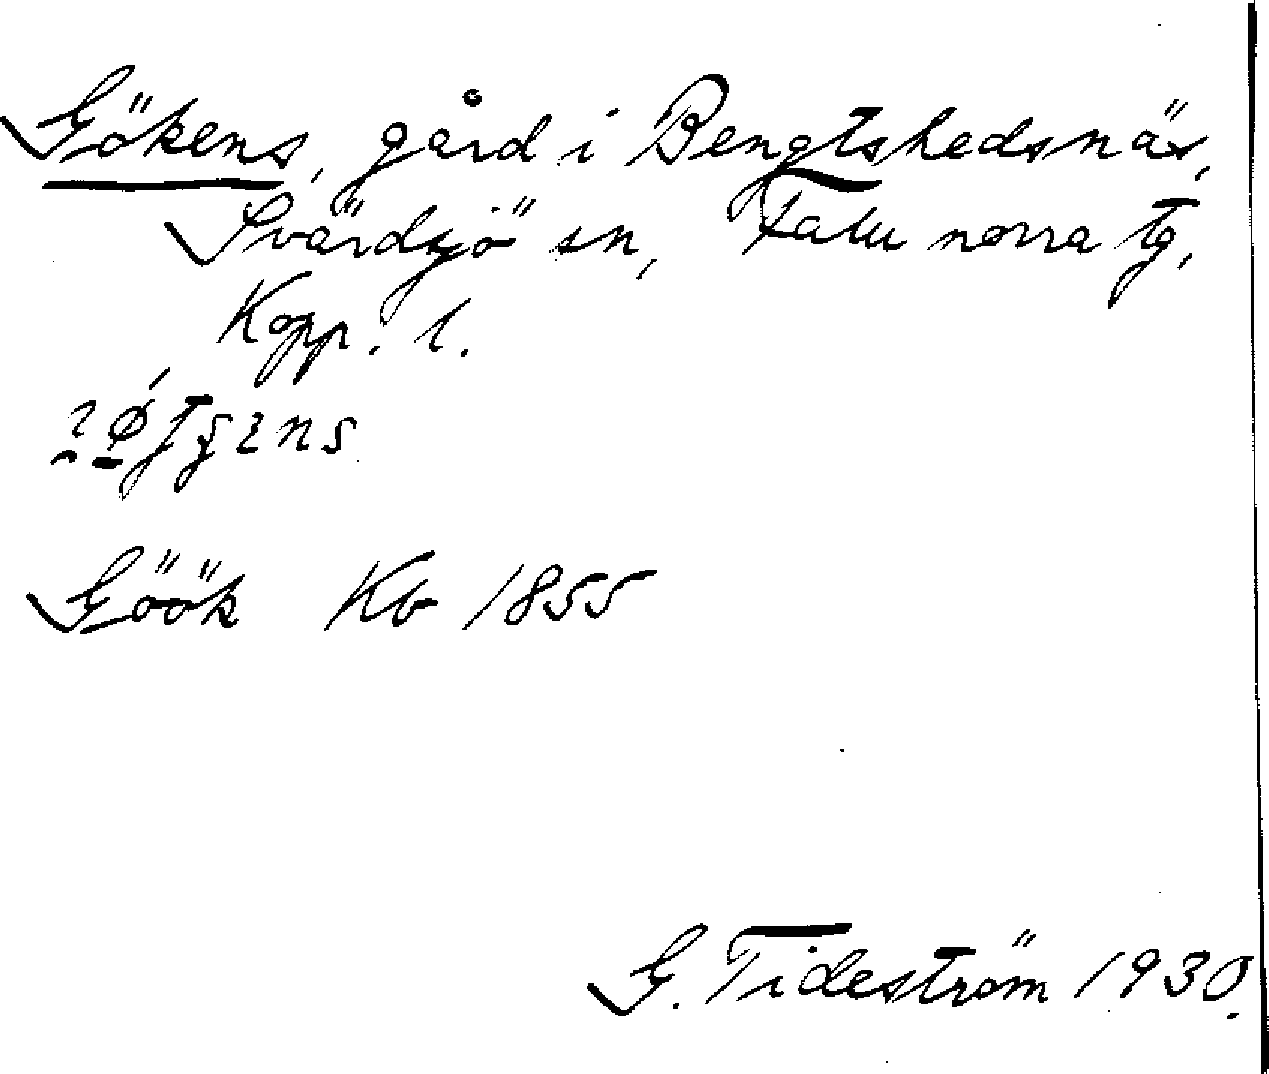 Gökens, gård i Bengtshedsnäs,
Svärdsjö sn, Falu norra tg,
Kopp. l.
Göök Kb 1855
G. Tideström 1930.